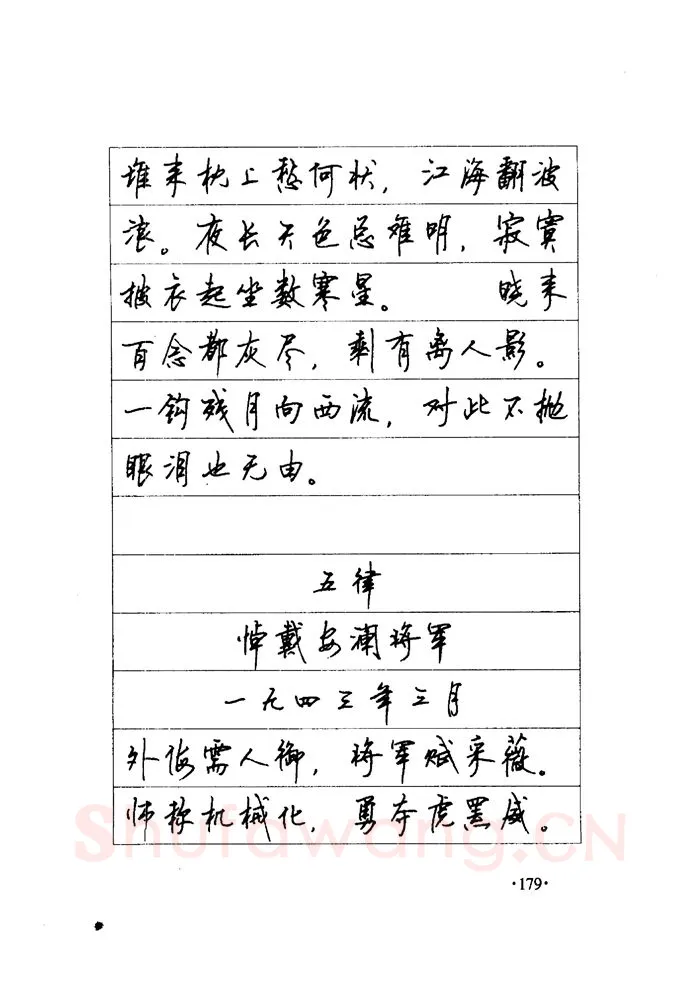 堆来枕上愁何状，江海翻波
浪。夜长天色总难明，寂寞
披衣起坐数寒星。 晓来
百念都灰尽，剩有离人影。
一钩残月向西流，对此不抛
眼泪也无由。
五律
悼戴安澜将军
一九四三年三月
外侮需人御，将军赋采薇。
师称机械化，勇夺虎罴威。
Shufawang.CN
·179·